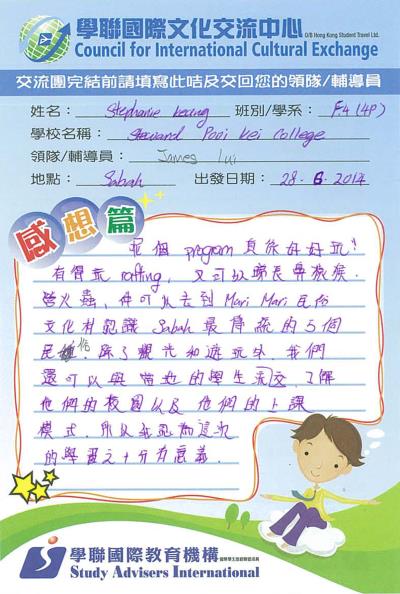 學聯國際文化交流中心
O/B Hong Kong Student Travel Ltd.
Council for International Cultural Exchange
交流團完結前請填寫此咭及交回您的領隊/輔導員
姓名： Stephanie Keung 班別/學系： F.4 (4P)
學校名稱： Steward Pooi Kei College
領隊/輔導員： James Lui
地點： Sabah 出發日期： 28. 6. 2014
感想篇
呢個 program 真係好好玩！
有得玩 rafting, 又可以睇長鼻猴,
螢火蟲, 仲可以去到 Mari Mari 民俗
文化村認識 Sabah 最傳統的5個
民俗. 除了觀光和遊玩外, 我們
還可以與當地的學生交流, 了解
他們的校園以及他們的上課
模式. 所以我認為這
的學習之十分有意義.
學聯國際教育機構
Study Advisers International